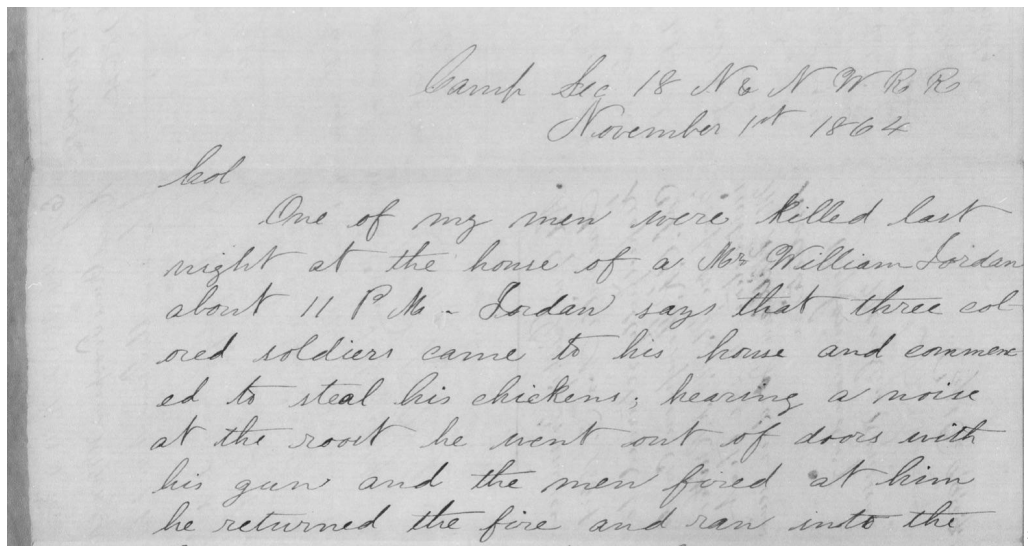 Camp Sec 18 N & N. W R R
November 1st 1864
Col
One of my men were killed last
night at the house of a Mr William Jordan
about 11 P M - Jordan says that three col
ored soldiers came to his house and commenc
ed to steal his chickens. hearing a noise
at the roost he went out of doors with
his gun and the men fired at him
he returned the fire and ran into the